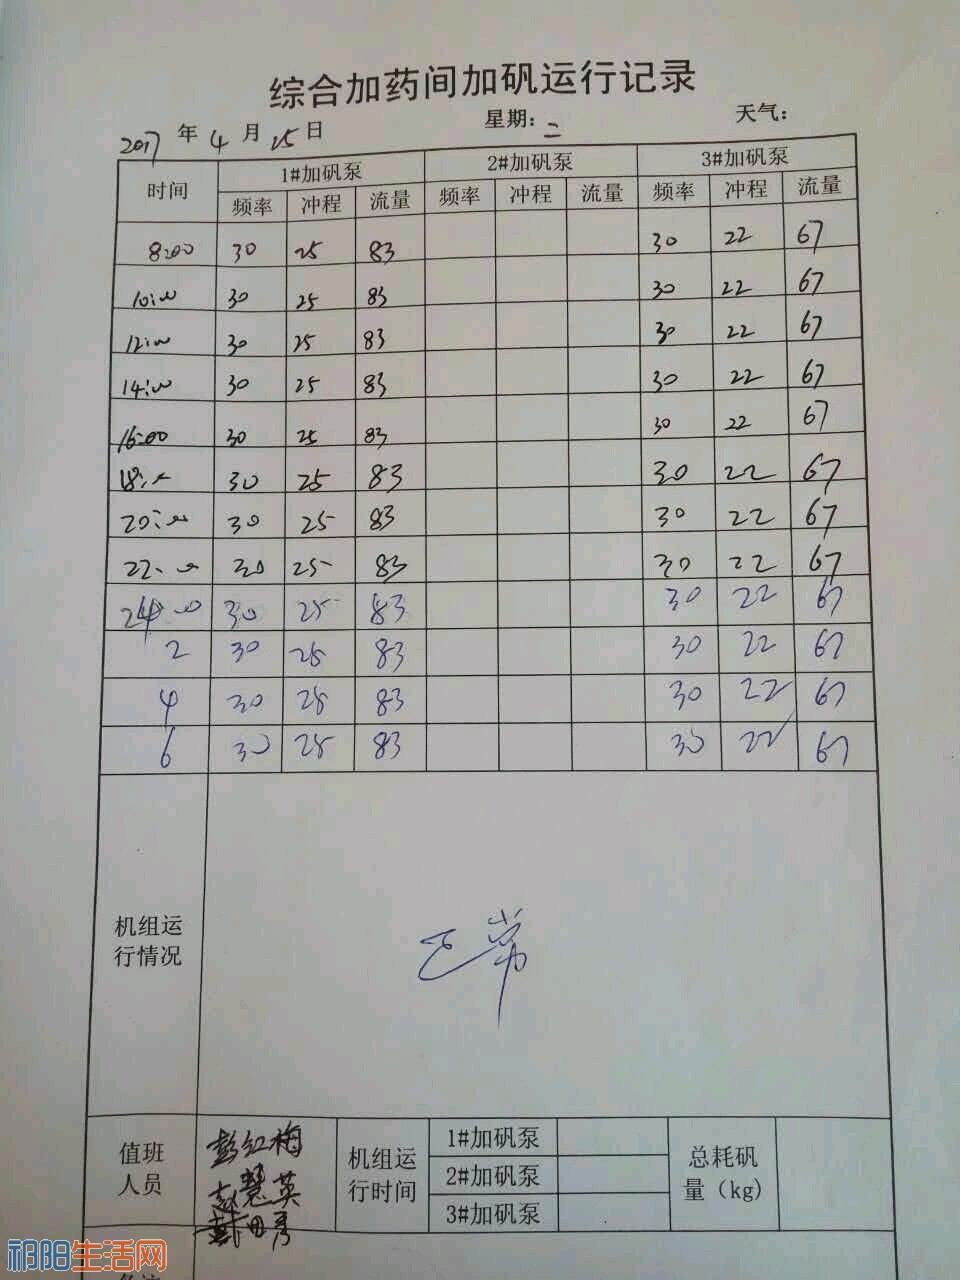 综合加药间加矾运行记录
2017 年 4 月 25 日 星期：二 天气：
时间 1#加矾泵 2#加矾泵 3#加矾泵
频率 冲程 流量 频率 冲程 流量 频率 冲程 流量
8:00 30 25 83 30 22 67
10:00 30 25 83 30 22 67
12:00 30 25 83 30 22 67
14:00 30 25 83 30 22 67
16:00 30 25 83 30 22 67
18:00 30 25 83 30 22 67
20:00 30 25 83 30 22 67
22:00 30 25 83 30 22 67
24:00 30 25 83 30 22 67
2 30 25 83 30 22 67
4 30 25 83 30 22 67
6 30 25 83 30 22 67
机组运
行情况
正常
值班
人员
彭红梅
赵慧英
机组运
行时间
1#加矾泵
2#加矾泵
3#加矾泵
总耗矾
量（kg）
祁阳生活网